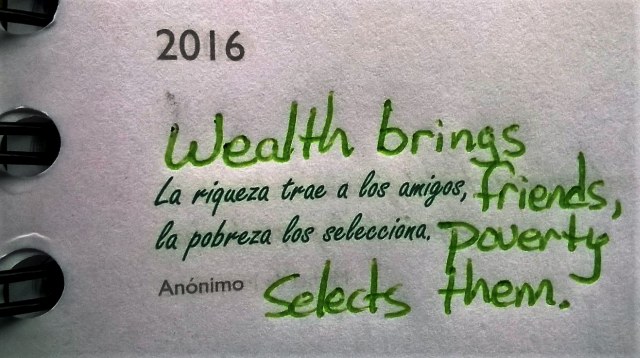 2016
Wealth brings
La riqueza trae a los amigos, friends,
la pobreza los selecciona. poverty
Anónimo selects them.